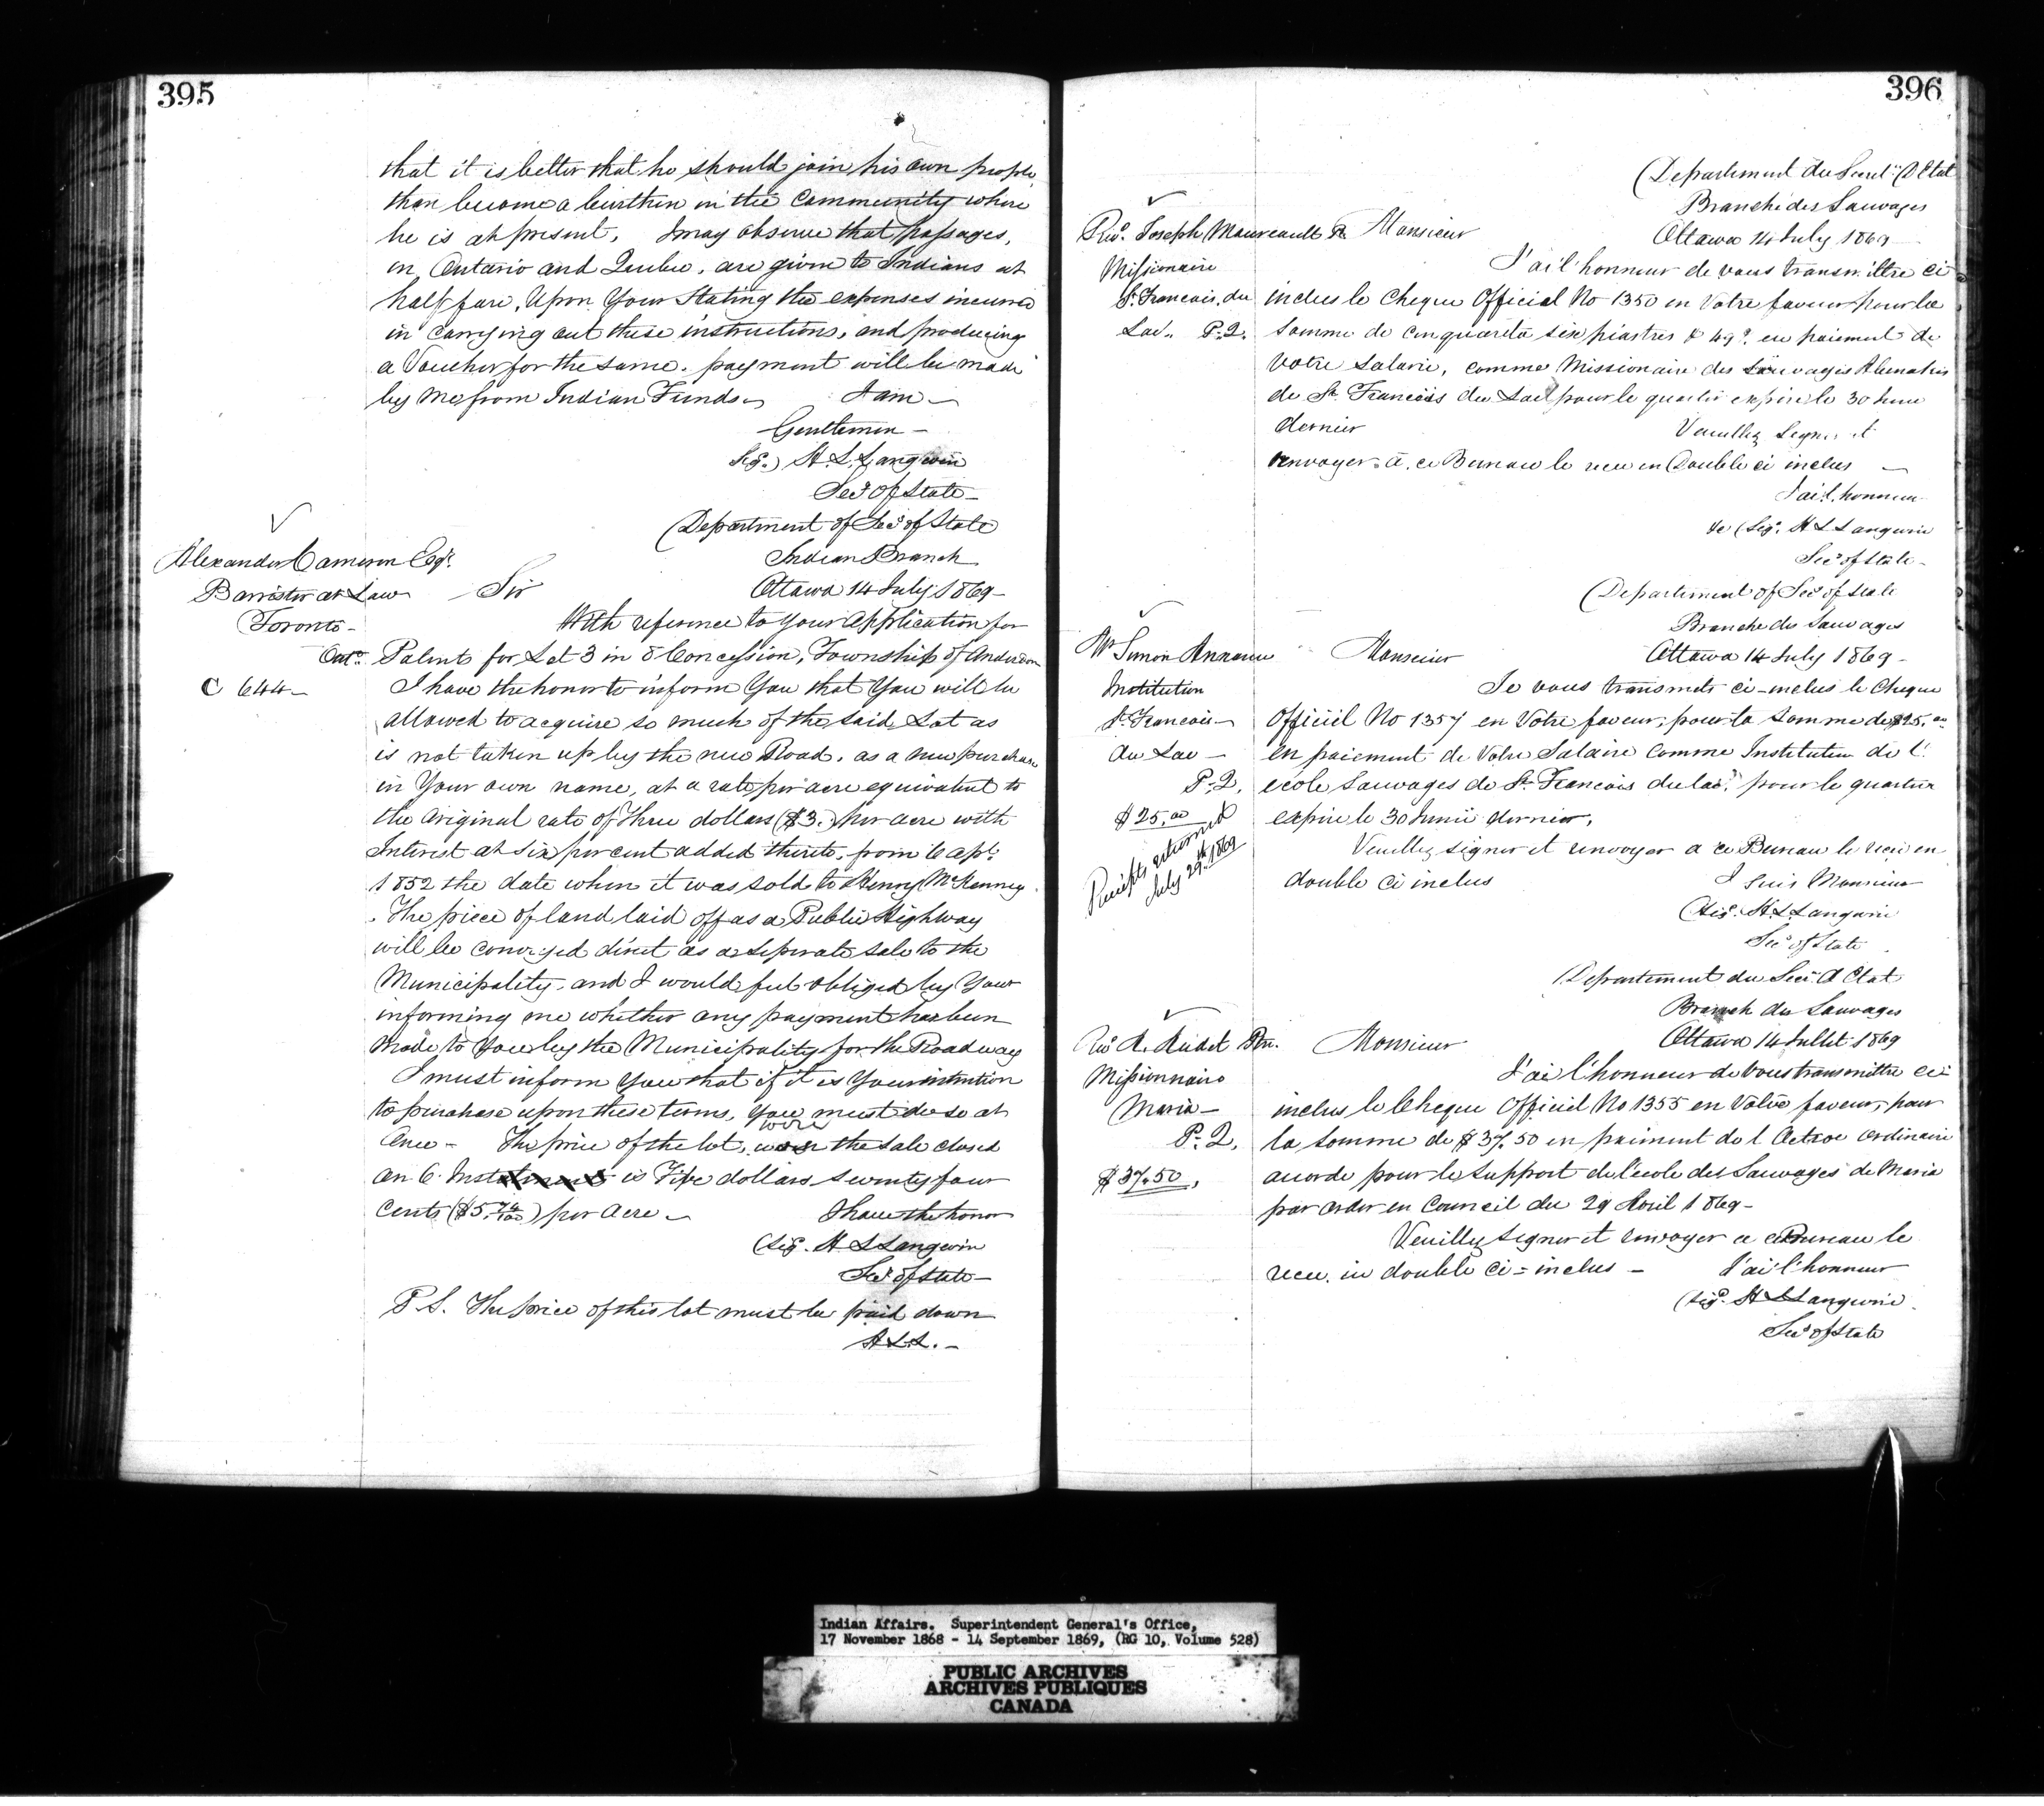 395
that it is better that he should join his own people
than become a burthen in the Community where
he is at present. I may observe that passages,
in Ontario and Quebec, are given to Indians at
half fare. Upon Your Stating the expenses incurred
in carrying out these instructions, and producing
a Voucher for the same. payment will be made
by me from Indian Funds. I am
Gentlemen
Sig.) H. L. Langevin
Secy of State
Department of Secy of State
Indian Branch
Alexander Cameron Esqr.
Barrister at Law
Toronto
Onto.
C 644
Sir Ottawa 14 July 1869
With reference to your Application for
Patent for Lot 3 in 8 Concession, Township of Anderdon
I have the honor to inform You that You will be
allowed to acquire so much of the said Lot as
is not taken up by the new Road, as a new purchase
in Your own name, at a rate per acre equivalent to
the original rate of three dollars ($3.) per acre with
Interest at six per cent added thereto, from 6 apl.
1852 the date when it was sold to Henry McKenney
. The piece of land laid off as a Public Highway
will be conveyed direct as a seperate sale to the
Municipality, and I would feel obliged by Your
informing me whether any payment has been
made to You by the Municipality for the Roadway
I must inform you that if it is Your intention
to purchase upon these terms, You must do so at
Once - The price of the lot, were the sale closed
on 6 Inst is Five dollars seventy four
Cents ($5. 74/100) per Acre
I have the honor
(Sig. H L Langevin
Secy of State
P.S. The price of this lot must be paid down
H.L.L.
396
Departement du Secret. D'Etat
Branche des Sauvages
Ottawa 14 July 1869
Revd. Joseph Maureault Pr.
Missionaire
St. Francois du
Lac. P.Q.
Monsieur
J'ai l'honneur de vous transmettre ci
inclus le Cheque Official No 1350 en Votre faveur pour la
Somme de cinquante six piastres & 49c. en paiement de
Votre Salarie, comme Missionaire des Sauvages Abenakis
de St. Francois du Lac pour le quartier expiré le 30 June
dernier Veuillez Signer et
renvoyer à ce Bureau le recu en Double ci inclus
J'ai l'honneur
&c (Sig. H L Langevin
Secy of State
Department of Secy of State
Branche des Sauvages
Ottawa 14 July 1869
Mr Simon Annance
Institution
St. Francois
du Lac
P.Q.
$25.00
Receipts returned
July 29th. 1869
Monsieur
Je vous transmets ci-inclus le Cheque
Officiel No 1357 en Votre faveur, pour la Somme de $25.00
en paiement de Votre Salaire comme Instituteur de l'
ecole Sauvages de St. Francois du lac, pour le quartier
expiré le 30 Juin dernier,
Veuillez signer et renvoyer a ce Bureau le recu en
double ci inclus J Suis Monsieur
(Sig. H L Langevin
Secy of State
Departement du Secr. d'Etat
Branch des Sauvages
Ottawa 14 Jullet 1869
Missionnaire
Maria
P.Q.
$37.50,
Monsieur
J'ai l'honneur de Vous transmettre ci-
inclus le Cheque Officiel No 1355 en Votre faveur, pour
la Somme de $37.50 en paiment de l'Octroi ordinaire
acorde pour le Support de l'ecole des Sauvages de Maria
par order en Council du 29 Avril 1869
Veuillez signer et renvoyer a ce Bureau le
recu. in double ci=inclus - J'ai l'honneur
(Sig. H L Langevin
Secy of State
Indian Affairs. Superintendent General's Office,
17 November 1868 - 14 September 1869, (RG 10, Volume 528)
PUBLIC ARCHIVES
ARCHIVES PUBLIQUES
CANADA